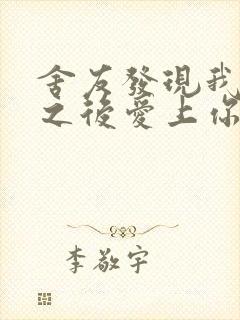 舍友發現我
之後愛上你
李敬宇